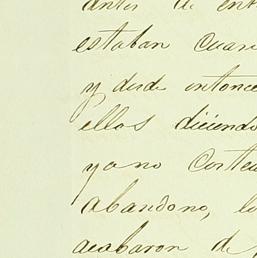 antes de ent
estaban cuan
y desde entonce
ellos diciendo
yo no conte
abandono, lo
acabaron de